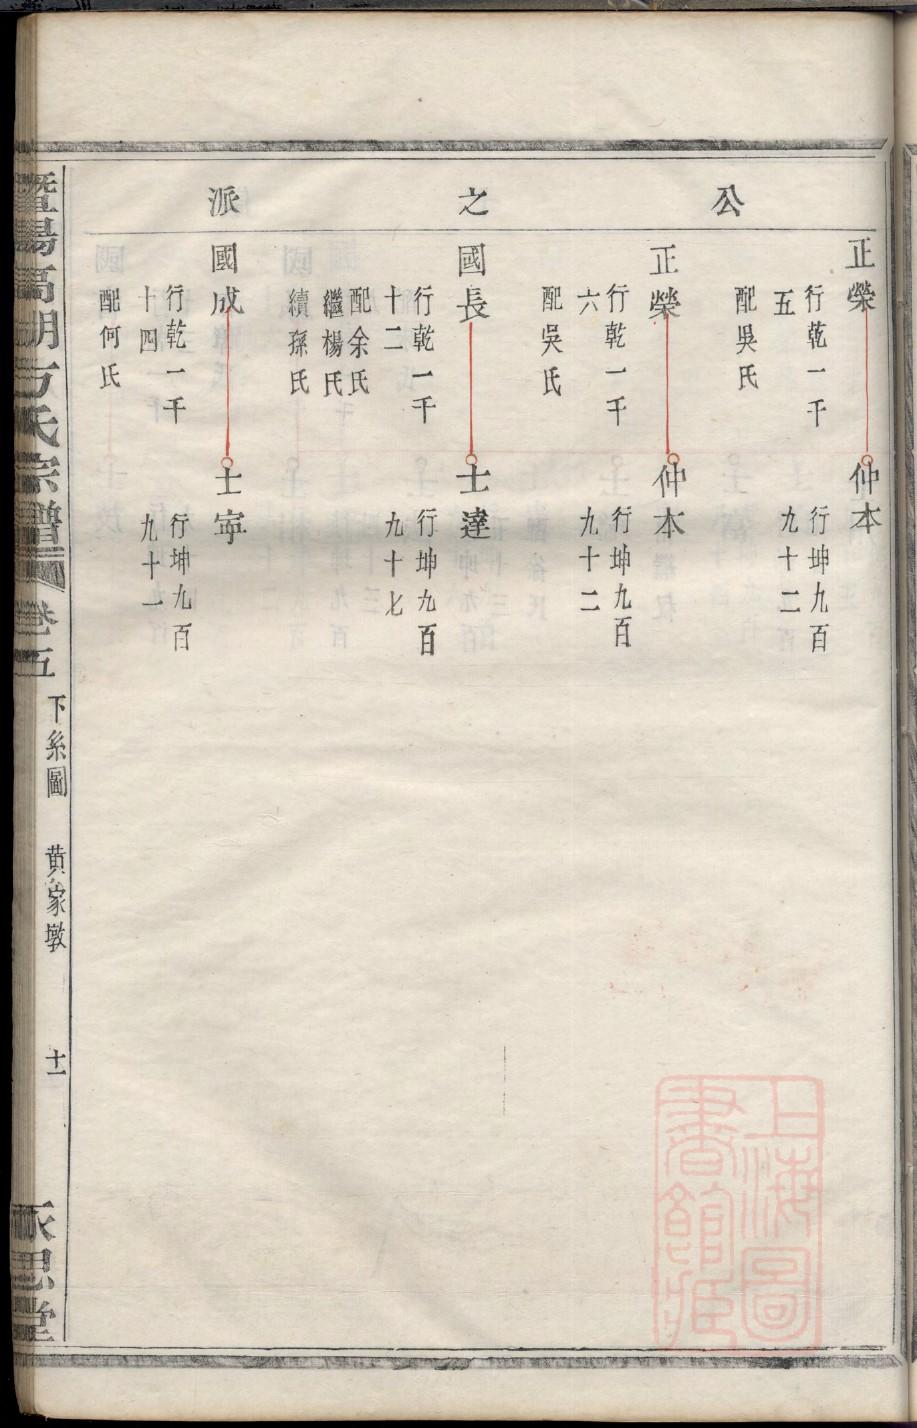 公之派
正榮
行乾一千
五
配吳氏
仲本
行坤九百
九十二
正榮
行乾一千
六
配吳氏
仲本
行坤九百
九十二
國長
行乾一千
十二
配余氏
繼楊氏
續孫氏
士達
行坤九百
九十七
國成
行乾一千
十四
配何氏
士寜
行坤九百
九十一
暨陽高湖方氏宗譜
卷五
下糸圖
黄家墩
十一
永思堂
上海圖
書館藏